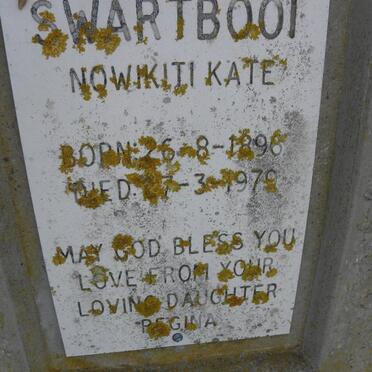 SWARTBOOI
NOWIKITI KATE
BORN: 26-8-1896
DIED: 7-3-1979
MAY GOD BLESS YOU
LOVE FROM YOUR
LOVING DAUGHTER
REGINA